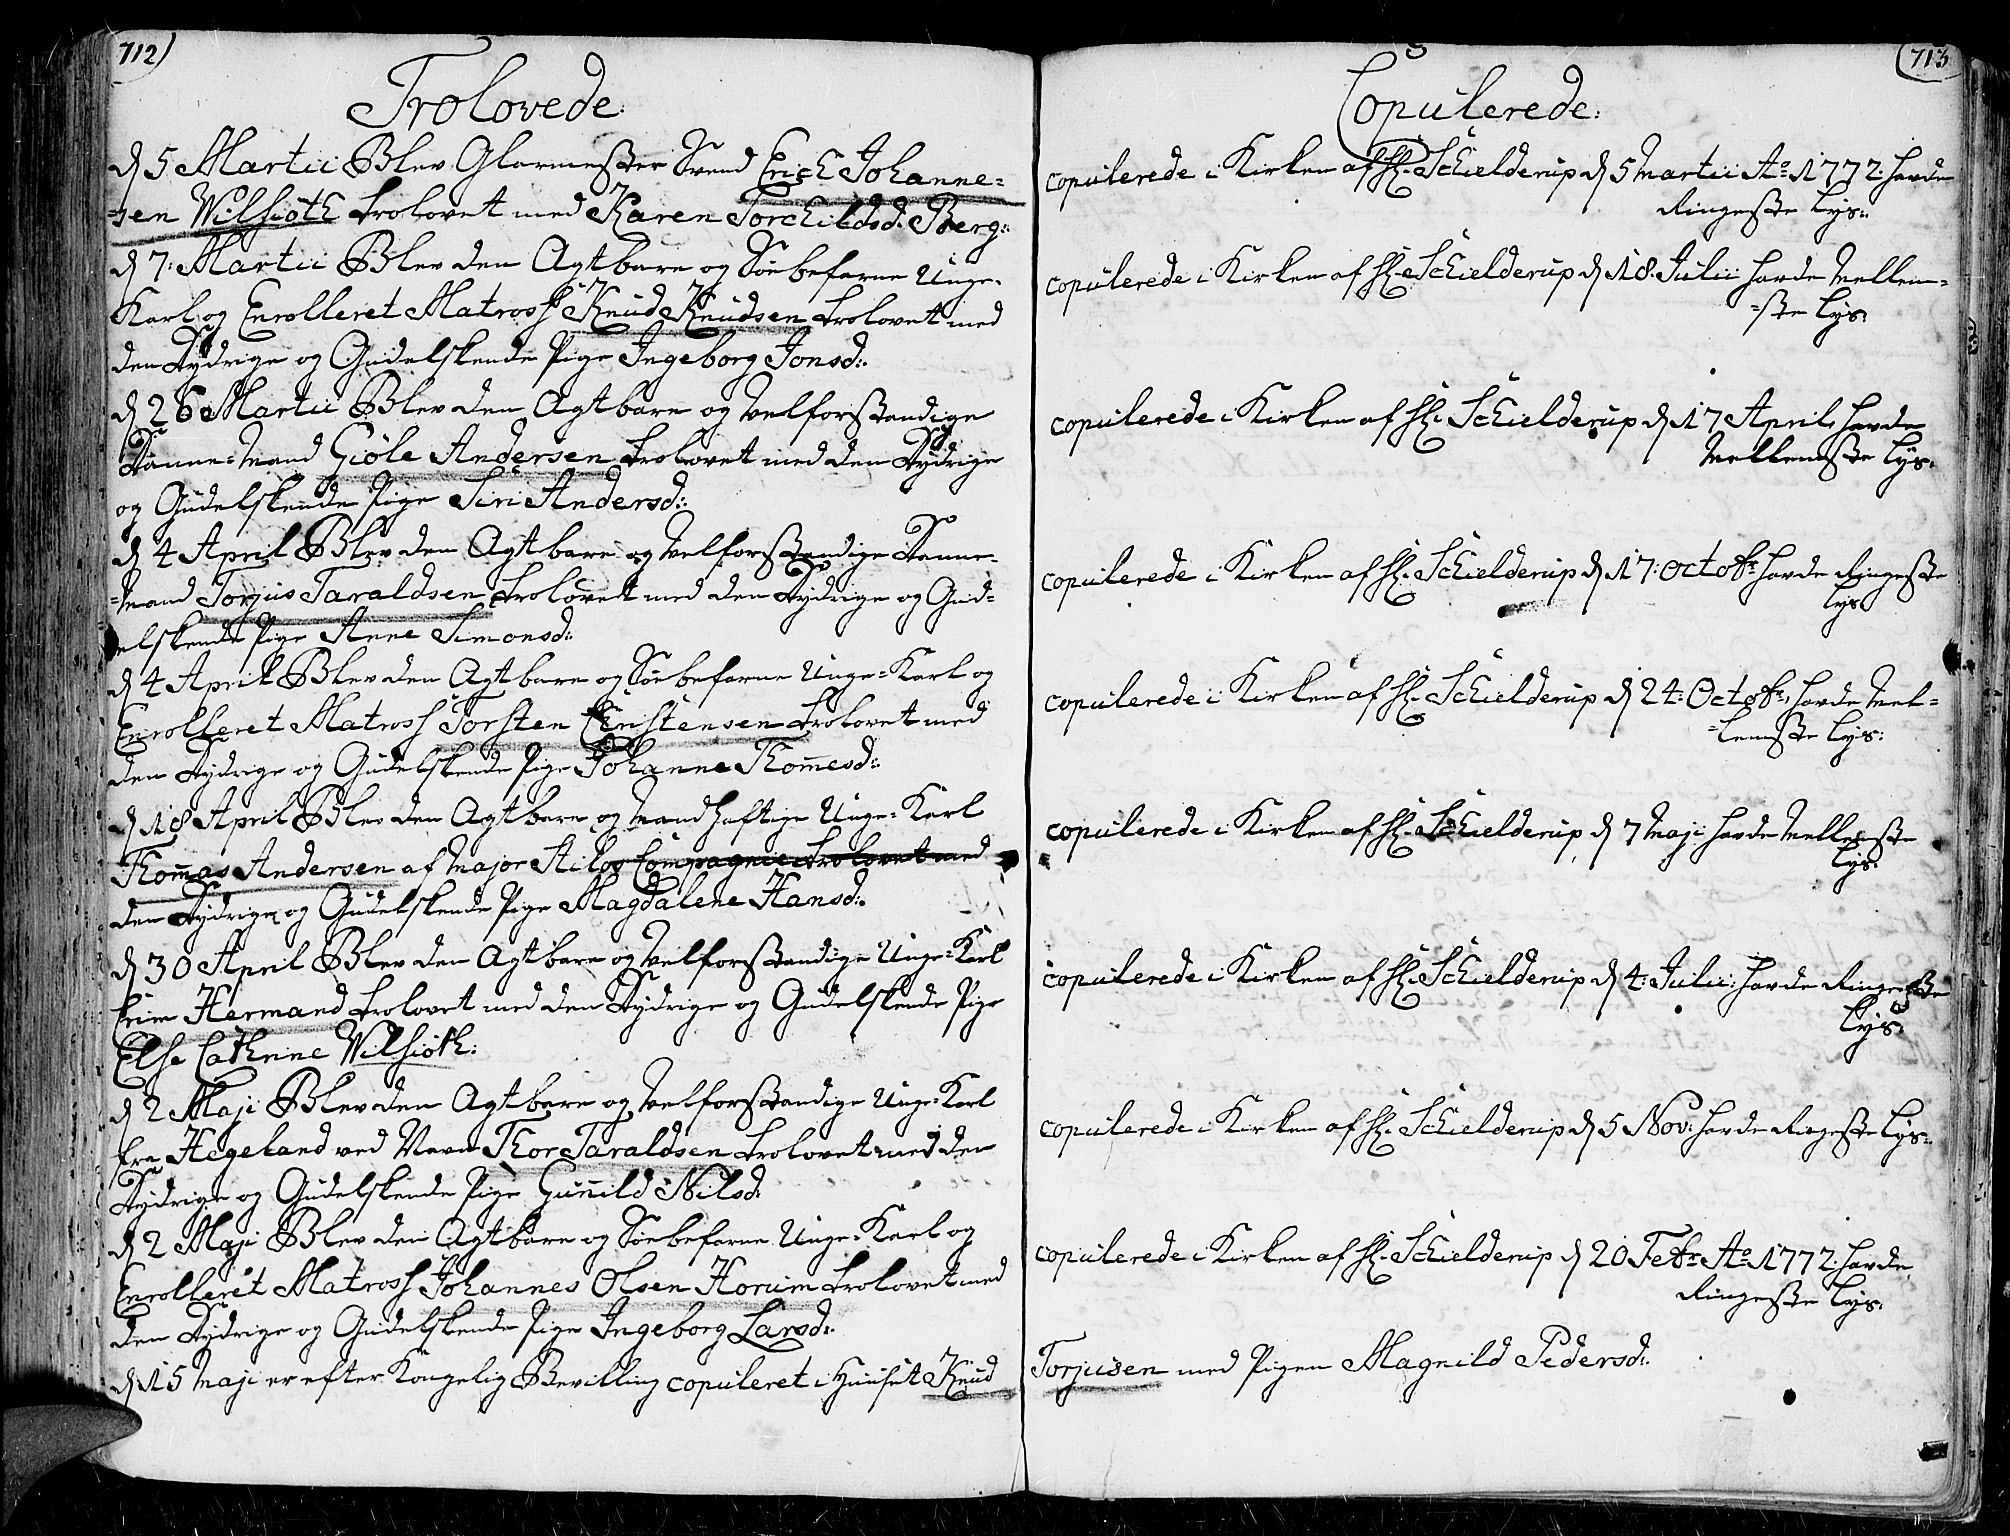 712)
Trolovede:
d 5 Martii Blev Glarmester Svend Erich Johanne=
=sen Wilhiøth trolovet med Karen Torchildsd. Berg:
d 7: Martii Blev den Agtbare og Søebefarne Unge-
Karl og Enrolleret Matross Knud Knudsen trolovet med
den Dydrige og Gudelskende Pige Ingeborg Jonsd:
d 26 Martii Blev den Agtbare og Velforstandige
Danne=Mand Giøle Andersen trolovet med den Dydrige
og Gudelskende Pige Siri Andersd:
d 4 April Blev den Agtbare og Velforstandige Danne-
=Mand Torjus Taraldsen trolovet med den Dydrige og Gud=
elskende Pige Anne Simonsd:
d 4 April Blev den Agtbare og Søebefarne Unge=Karl og
Enrolleret Matross Torsten Christensen trolovet med
den Dydrige og Gudelskende Pige Johanne Thomesd:
d 18 April Blev den Agtbare og Mandhaftige Unge=Karl
Thomas Andersen af Major Compagnie trolovet med
den Dydrige og Gudelskende Pige Magdalene Hansd:
d 30 April Blev den Agtbare og Velforstandige Unge=Karl
Hermand trolovet med den Dydrige og Gudelskende Pige
Else Cathrine Wilhiøth:
d 2 Maji Blev den Agtbare og Velforstandige Unge=Karl
fra Hegeland ved Navn Thor Taraldsen trolovet med den
Dydrige og Gudelskende Pige Gunnild Nilsd:
d 2 Maji Blev den Agtbare og Søebefarne Unge=Karl og
Enrolleret Matross Johannes Olsen Horum trolovet med
den Dydrige og Gudelskende Pige Ingeborg Larsd:
d 15 Maji er efter Kongelig Bevilling copuleret i Huuset Knud
713
Copulerede:
copulerede i Kirken af Hr. Schielderup d 5 Martii Ao 1772. havde
Ringeste Lys:
copulerede i Kirken af Hr. Schielderup d 18. Julii havde Mellem=
=ste Lys:
copulerede i Kirken af Hr. Schielderup d 17 April, havde
Mellemste Lys:
copulerede i Kirken af Hr. Schielderup d 17: Octobr havde Ringeste
Lys
copulerede i Kirken af Hr. Schielderup d 24: Octobr, havde Mel=
=lemste Lys:
copulerede i Kirken af Hr. Schielderup d 7 Maji havde Mellemste
Lys:
copulerede i Kirken af Hr. Schielderup d 4: Julii: havde Ringeste
Lys:
copulerede i Kirken af Hr. Schielderup d 5 Nov: havde Ringeste Lys:
copulerede i Kirken af Hr. Schielderup d 20 Febr. Ao 1772. havde
Ringeste Lys:
Torjusen med Pigen Magnild Pedersd: